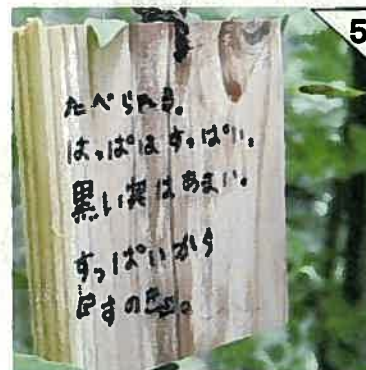 5
たべられる。
はっぱはすっぱい。
黒い実はあまい。
すっぱいから